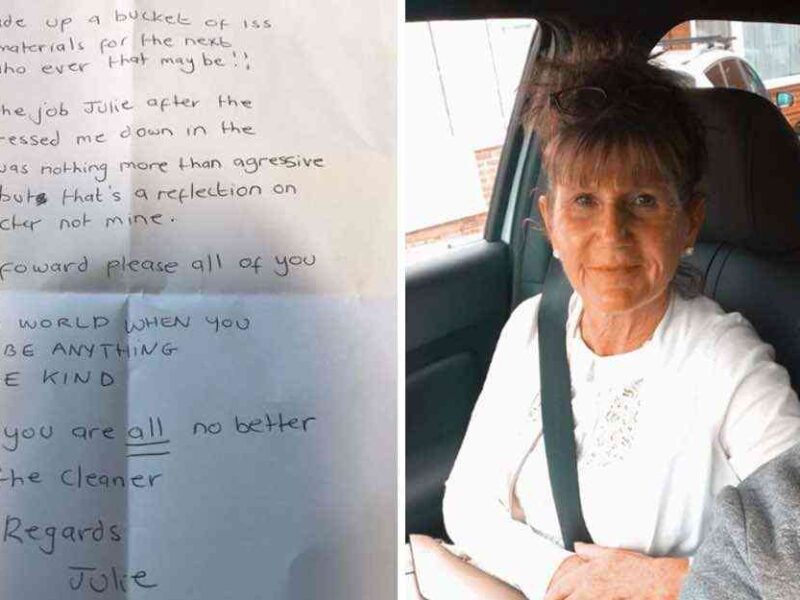 de up a bucket of iss
materials for the next
ho ever that may be!!
he job Julie after the
essed me down in the
was nothing more than agressive
but that's a reflection on
cter not mine.
foward please all of you
WORLD WHEN YOU
BE ANYTHING
E KIND
you are all no better
the Cleaner
Regards
Julie